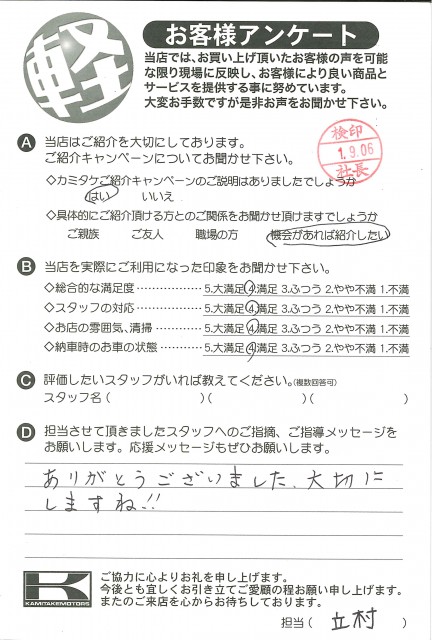 軽
お客様アンケート
当店では、お買い上げ頂いたお客様の声を可能
な限り現場に反映し、お客様により良い商品と
サービスを提供する事に努めています。
大変お手数ですが是非お声をお聞かせ下さい。
検印
1.9.06
社長
A 当店はご紹介を大切にしております。
ご紹介キャンペーンについてお聞かせ下さい。
◇カミタケご紹介キャンペーンのご説明はありましたでしょうか
はい いいえ
◇具体的にご紹介頂ける方とのご関係をお聞かせ頂けますでしょうか
ご親族 ご友人 職場の方 機会があれば紹介したい
B 当店を実際にご利用になった印象をお聞かせ下さい。
◇総合的な満足度 ……………… 5.大満足 4.満足 3.ふつう 2.やや不満 1.不満
◇スタッフの対応 ……………… 5.大満足 4.満足 3.ふつう 2.やや不満 1.不満
◇お店の雰囲気、清掃 ………… 5.大満足 4.満足 3.ふつう 2.やや不満 1.不満
◇納車時のお車の状態 ………… 5.大満足 4.満足 3.ふつう 2.やや不満 1.不満
C 評価したいスタッフがいれば教えてください。(複数回答可)
スタッフ名 ( )( )( )
D 担当させて頂きましたスタッフへのご指摘、ご指導メッセージを
お願いします。応援メッセージもぜひお願いします。
ありがとうございました、大切に
しますね!!
K
KAMITAKEMOTORS
ご協力に心よりお礼を申し上げます。
今後とも宜しくお引き立てご愛顧の程お願い申し上げます。
またのご来店を心からお待ちしております。
担当 ( 立村 )